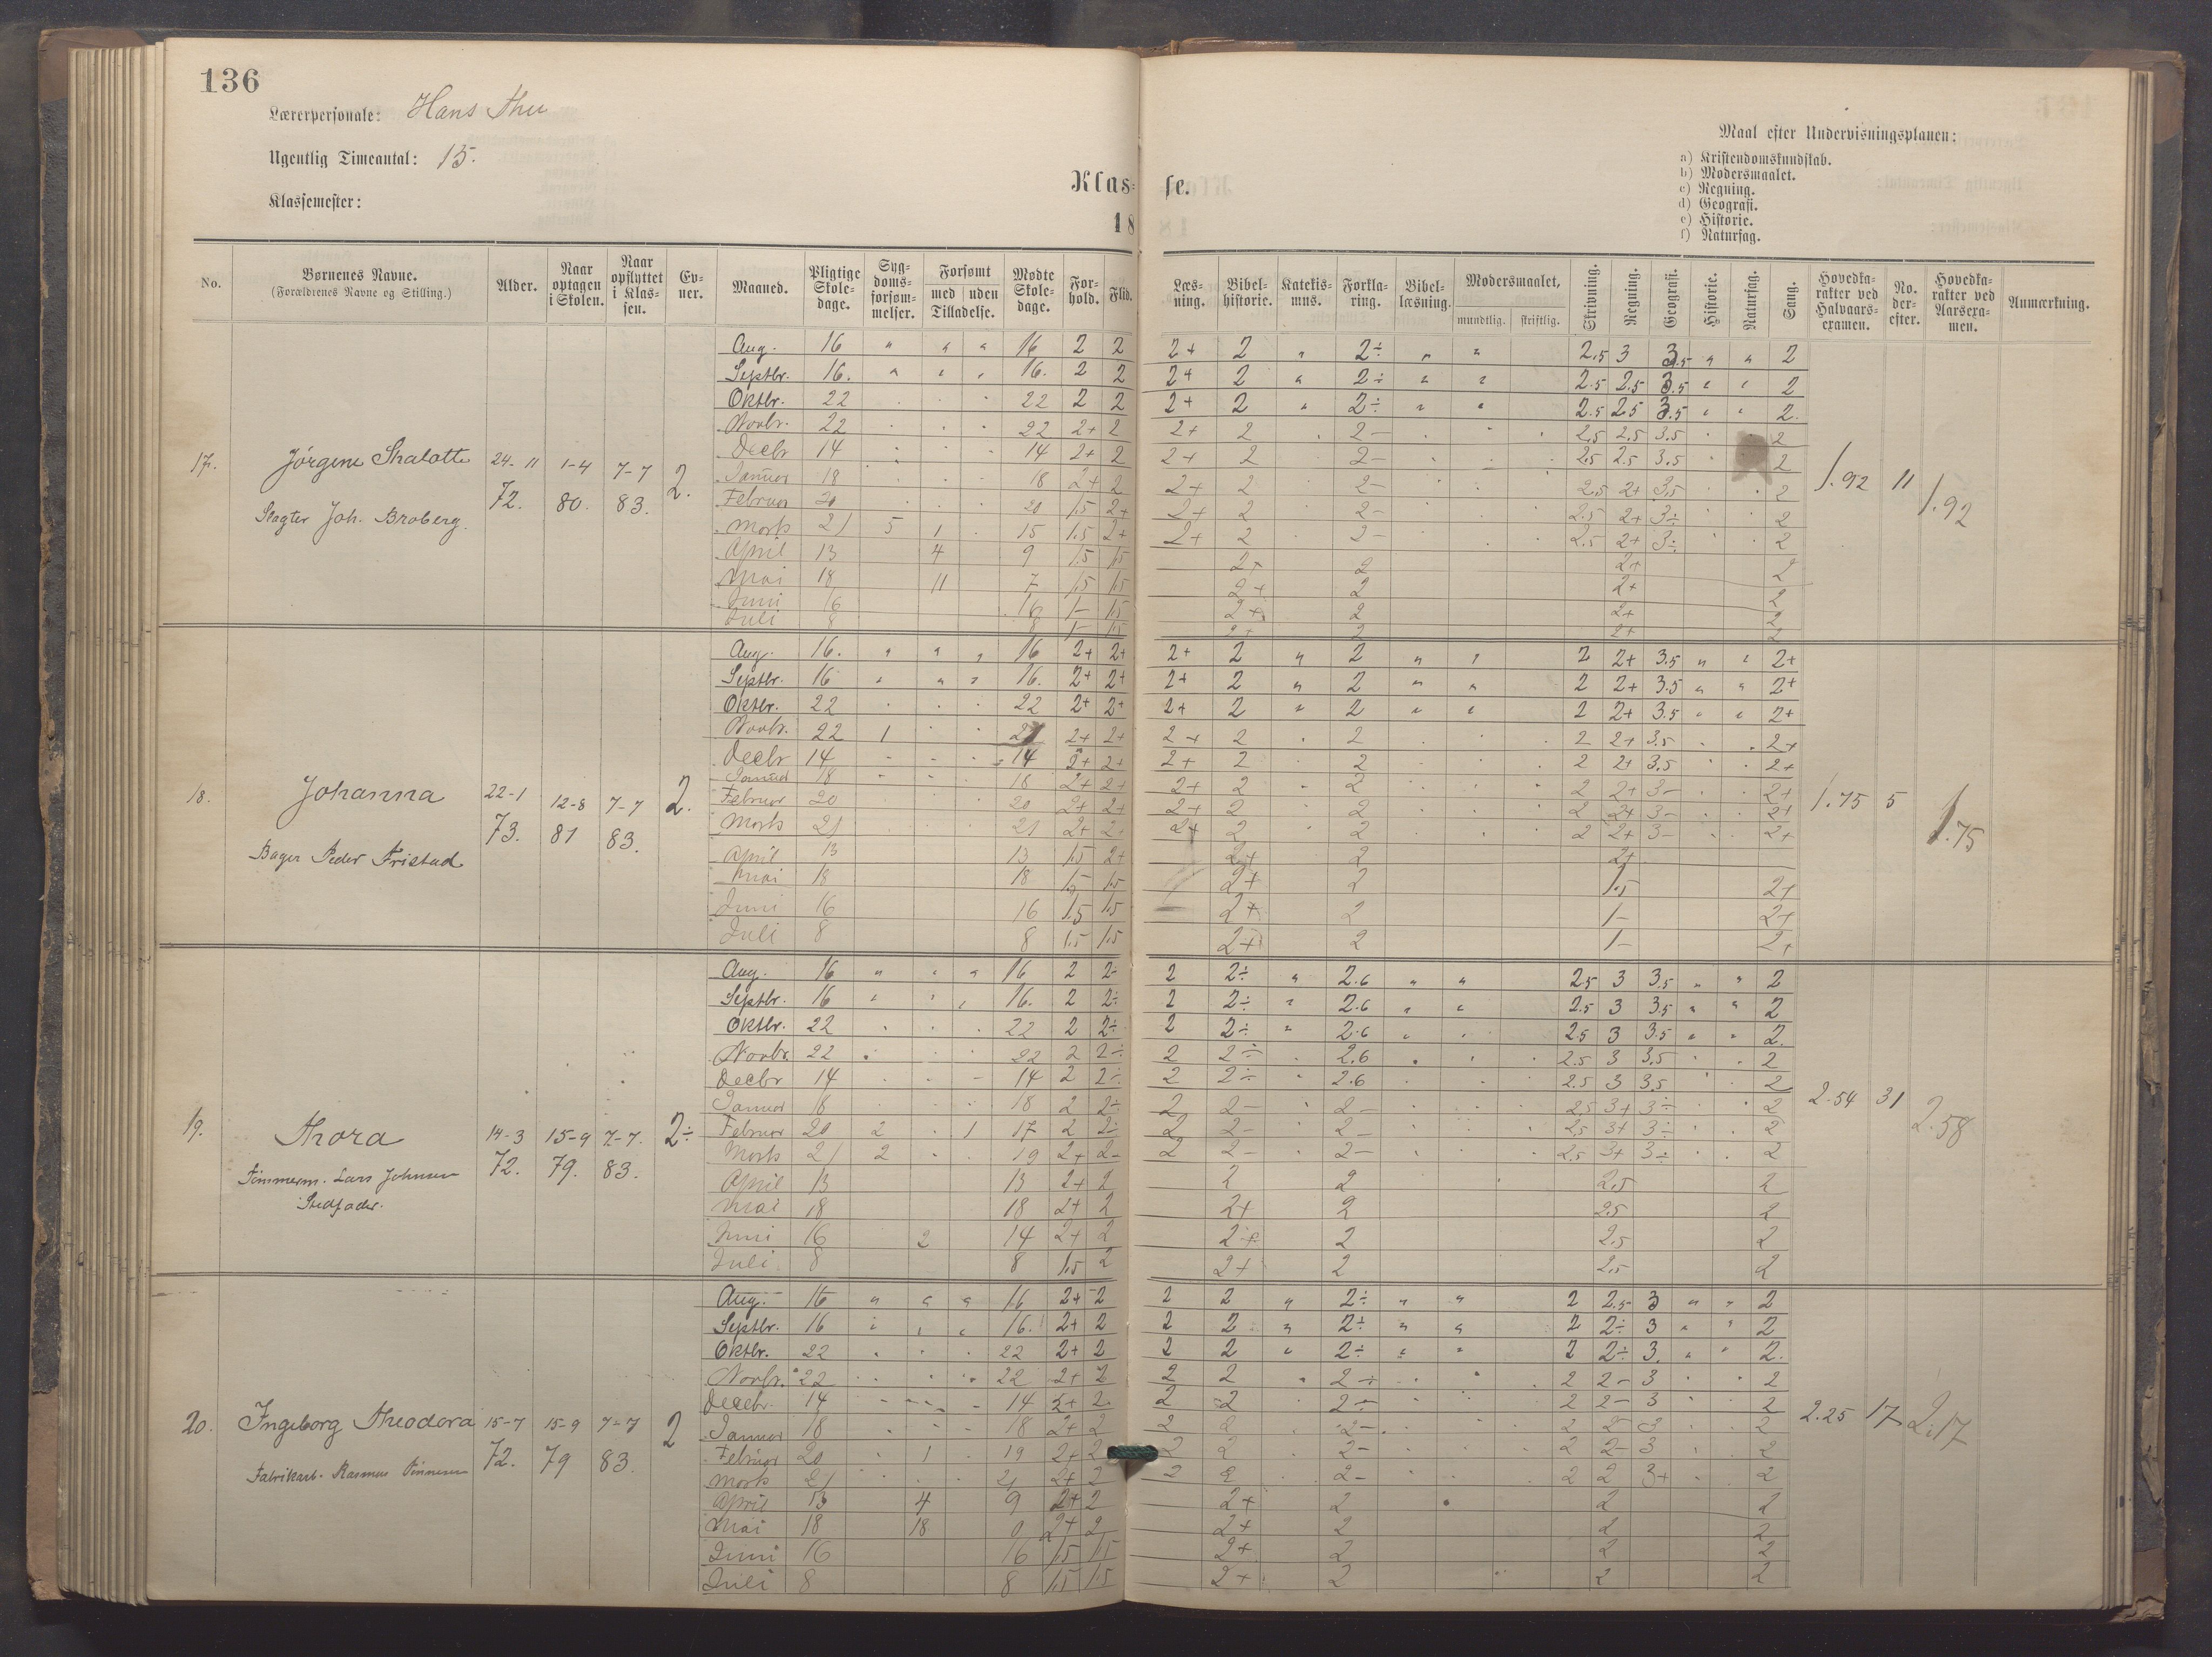 136
Lærerpersonale: Hans Thu
Ugentlig Timeantal: 15.
Klassemester:
Klasse.
18
Maal efter Undervisningsplanen:
a) Kristendomskundskab.
b) Modersmaalet.
c) Regning.
d) Geografi.
e) Historie.
f) Naturfag.
No. Børnenes Navne. (Forældrenes Navne og Stilling.) Alder. Naar optagen i Skolen. Naar opflyttet i Klassen. Evner. Maaned. Pligtige Skoledage. Sygdomsforsømmelser. Forsømt med uden Tilladelse. Mødte Skoledage. Forhold. Flid. Læsning. Bibelhistorie. Katekismus. Forklaring. Bibellæsning. Modersmaalet, mundtlig. skriftlig. Skrivning. Regning. Geografi. Historie. Naturfag. Sang. Hovedkarakter ved Halvaarsexamen. No. derefter. Hovedkarakter ved Aarsexamen. Anmærkning.
17. Jörgine Skalotte 24-11 72. 1-4 80. 7-7 83. 2. 1.92 11 1.92
Slagter Joh. Broberg.
Aug. 16 " " " 16 2 2 2+ 2 " 2÷ " " 2.5 3 3.5 " " 2
Septbr. 16. " " " 16. 2 2 2+ 2 " 2÷ " " 2.5 2.5 3.5 " " 2
Oktbr. 22 22 2 2 2+ 2 " 2÷ " " 2.5 25 3.5 " " 2.
Novbr. 22 22 2+ 2 2+ 2 2- 2.5 2.5 3.5 2
Decbr 14 14 2+ 2 2+ 2 2- 2.5 2.5 3.5 2
Januar 18 18 2+ 2 2+ 2 2- 2.5 2+ 3.5 2
Februar 20 20 1.5 2+ 2+ 2 2- 2.5 2+ 3÷ 2
Marts 21 5 1 15 1.5 2+ 2+ 2 2- 2.5 2+ 3÷ 2
April 13 4 9 1.5 1.5 2+ 2 2+ 2
Mai 18 11 7 1.5 1.5 2+ 2 2+ 2
Juni 16 16 1- 1.5 2+ 2 2+ 2
Juli 8 8 1- 1.5 2+ 2 2+ 2
18. Johanna 22-1 73. 12-8 81 7-7 83. 2. 1.75 5 1.75
Bager Peder Fristad
Aug. 16. " " " 16 2+ 2+ 2+ 2 " 2 " " 2 2+ 3.5 " " 2+
Septbr. 16 " " " 16. 2+ 2+ 2+ 2 " 2 " " 2 2+ 3.5 " " 2+
Oktbr. 22 22 2+ 2+ 2+ 2 " 2 " " 2 2+ 3.5 " " 2+
Novbr. 22 1 21 2+ 2+ 2+ 2 2 2 2+ 3.5 2+
Decbr 14 14 2+ 2+ 2+ 2 2 2 2+ 3.5 2+
Januar 18 18 2+ 2+ 2+ 2 2 2 2+ 3- 2+
Februar 20 20 2+ 2+ 2+ 2 2 2 2+ 3- 2+
Marts 21 21 2+ 2+ 2+ 2 2 2 2+ 3- 2+
April 13 13 1.5 2+ 2+ 2 2+
Mai 18 18 1.5 1.5 2+ 2 1.5 2+
Juni 16 16 1.5 1.5 2+ 2 1- 2+
Juli 8 8 1.5 1.5 2+ 2 1- 2+
19. Thora 14-3 72. 15-9 79. 7-7. 83. 2÷ 2.54 31 2.58
Tømmerm. Lars Johnsen
Stedfader.
Aug. 16 " " " 16 2 2÷ 2 2÷ " 2.6 " " 2.5 3 3.5 " " 2
Septbr. 16 " " " 16. 2 2÷ 2 2÷ " 2.6 " " 2.5 3 3.5 " " 2
Oktbr. 22 22 2 2÷ 2 2÷ " 2.6 " " 2.5 3 3.5 " " 2.
Novbr. 22 22 2 2÷ 2 2÷ 2.6 2.5 3 3.5 2
Decbr 14 14 2 2÷ 2 2÷ 2.6 2.5 3 3.5 2
Januar 18 18 2 2÷ 2 2- 2- 2.5 3+ 3÷ 2
Februar 20 2 1 17 2 2÷ 2 2- 2- 2.5 3+ 3÷ 2
Marts 21 2 19 2+ 2- 2 2- 2- 2.5 3+ 3÷ 2
April 13 13 2+ 2 2 2 2.5 2
Mai 18 18 2+ 2 2+ 2 2.5 2
Juni 16 2 14 2+ 2 2+ 2 2.5 2
Juli 8 8 1.5 2 2+ 2 2.5 2
20. Ingeborg Theodora 15-7 72. 15-9 79 7-7 83. 2 2.25 17 2.17
Fabrikarb. Rasmus
Aug. 16 " " " 16 2+ 2 2 2 " 2÷ " " 2 2.5 3 " " 2
Septbr. 16 " " " 16. 2+ 2 2 2 " 2÷ " " 2 2÷ 3 " " 2
Oktbr. 22 22 2+ 2 2 2 " 2÷ " " 2 2÷ 3. " " 2.
Novbr. 22 22 2+ 2 2 2 2÷ 2 2- 3 2
Decbr. 14 14 2+ 2. 2 2 2÷ 2 2- 3 2
Januar 18 18 2+ 2 2 2 2- 2 2- 3 2
Februar 20 1 19 2+ 2 2 2 2- 2 2- 3 2
Marts 21 21 2+ 2 2 2 2- 2 2 3+ 2
April 13 4 9 2+ 2 2+ 2 2 2
Mai 18 18 0 2+ 2 2+ 2 2 2
Juni 16 16 1.5 1.5 2+ 2 2 2
Juli 8 8 1.5 1.5 2+ 2 2 2